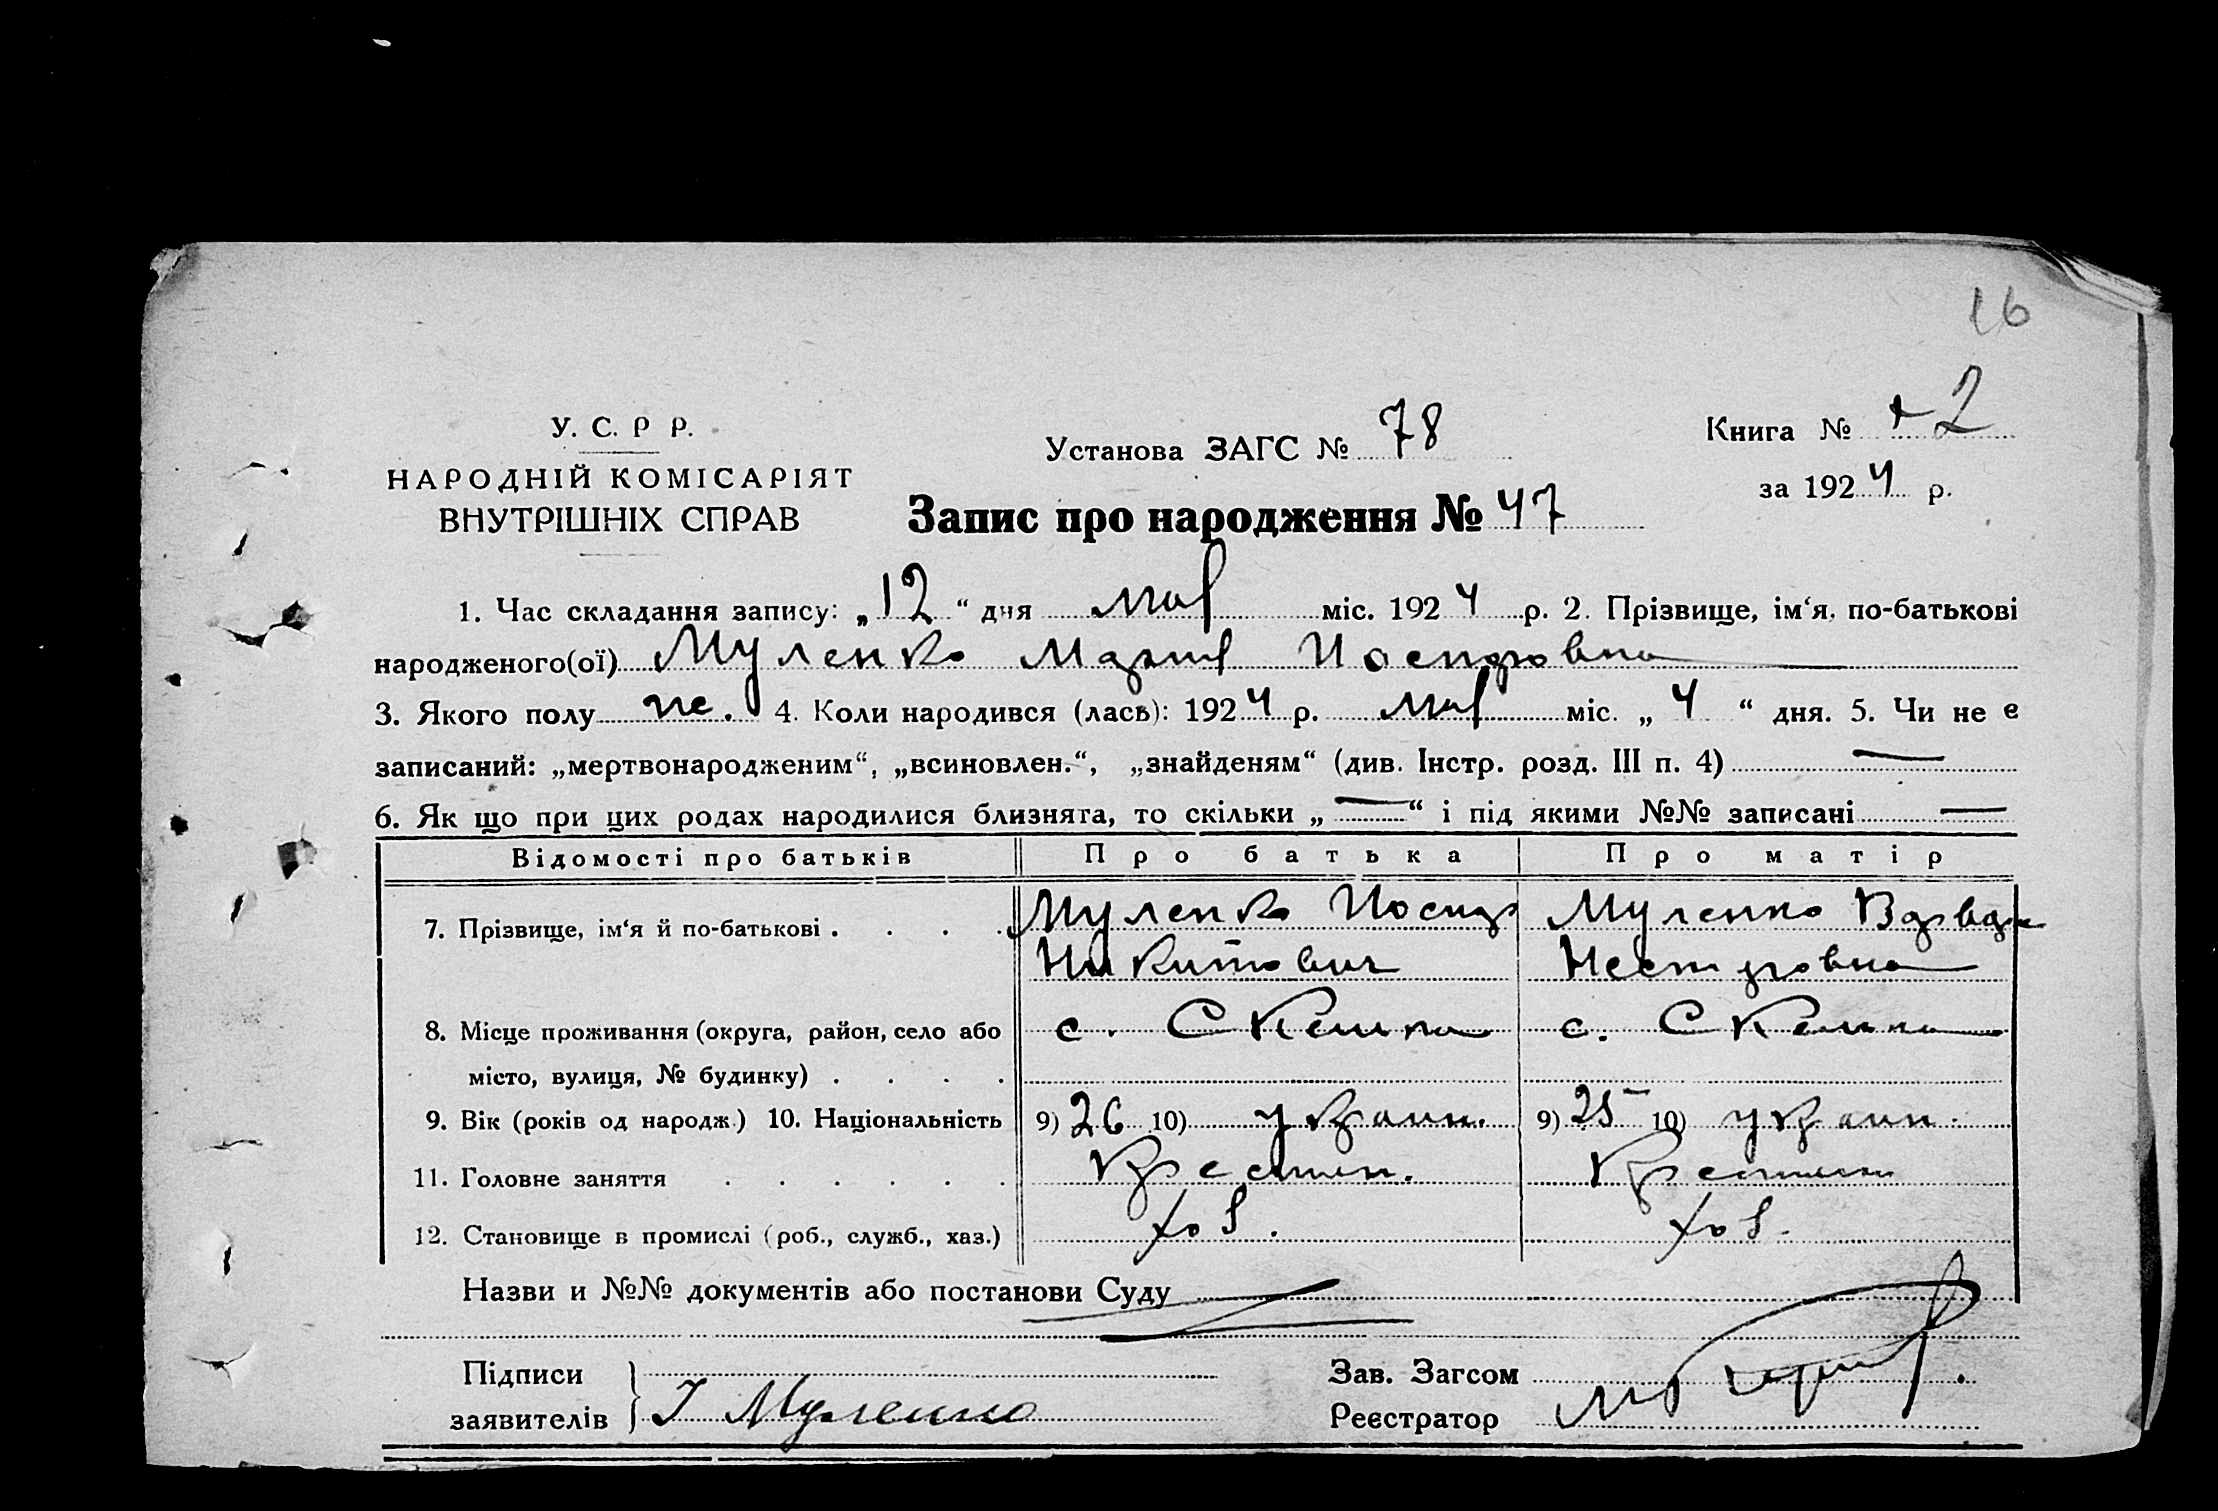 16
У. С. Р Р.
Установа ЗАГС № 78
Книга № 2
НАРОДНІЙ КОМІСАРІЯТ
ВНУТРІШНІХ СПРАВ
за 1924 р.
Запис про народження № 47
1. Час складання запису: „12“ дня мая міс. 1924 р. 2. Прізвище, ім‘я, по-батькові
народженого(ої) Муленко Мария Иосиповна
3. Якого полу же. 4. Коли народився (лась): 1924 р. мая міс. „4“ дня. 5. Чи не є
записаний: „мертвонародженим“, „всиновлен.“, „знайденям“ (див. Інстр. розд. III п. 4) —
6. Як що при цих родах народилися близнята, то скільки „—“ і під якими №№ записані —
Відомості про батьків Про батька Про матір
7. Прізвище, ім‘я й по-батькові . . . . Муленко Иосип Муленко
Никитович Нестеровна
8. Місце проживання (округа, район, село або с. Скелька с. Скелька
місто, вулиця, № будинку) . . . .
9. Вік (років од народж.) 10. Національність 9) 26 10) украин. 9) 25 10) украин.
11. Головне заняття . . . . . . Крестьян. Крестьян
12. Становище в промислі (роб., служб., хаз.) хоз. хоз.
Назви и №№ документів або постанови Суду
Підписи
заявителів } І Муленко
Зав. Загсом
Реєстратор